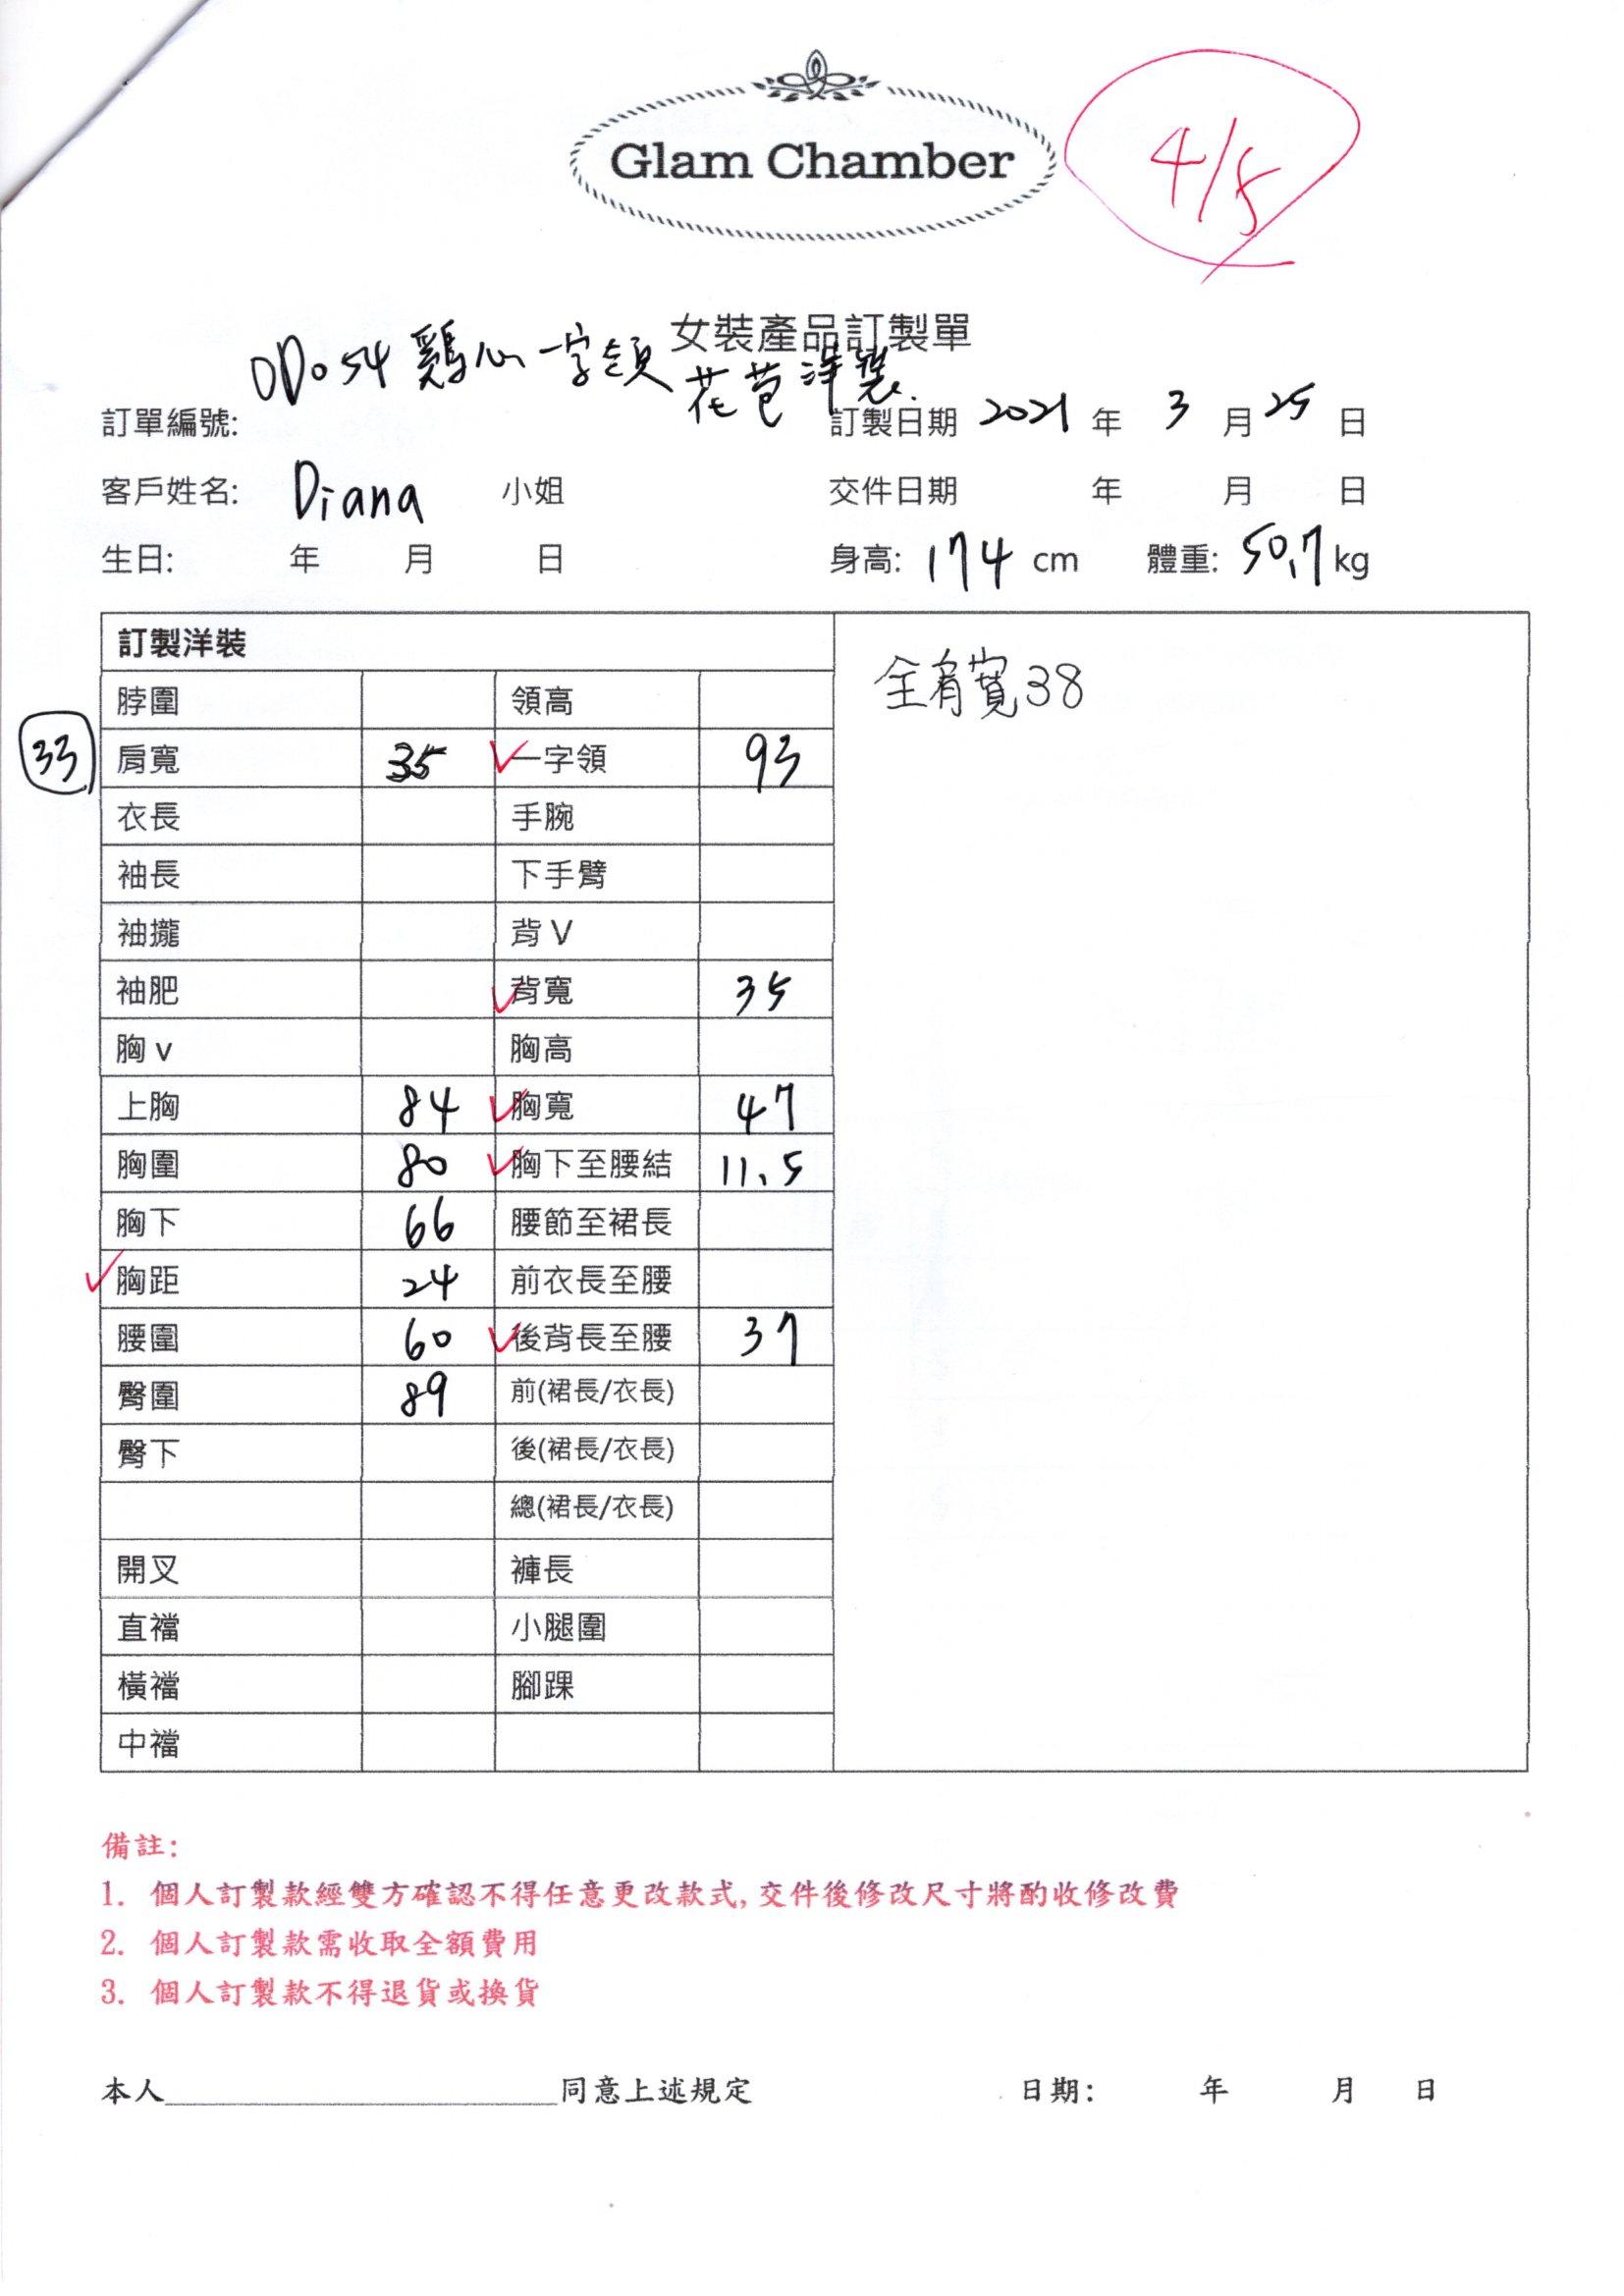 Glam Chamber
4/5
女裝產品訂製單
OD054 雞心一字領
花苞洋裝.
訂單編號: 訂製日期 2021 年 3 月 25 日
客戶姓名: Diana 小姐 交件日期 年 月 日
生日: 年 月 日 身高: 174 cm 體重: 50.7 kg
訂製洋裝
全肩寬38
脖圍 領高
33 肩寬 35 ✓一字領 93
衣長 手腕
袖長 下手臂
袖攏 背 V
袖肥 ✓背寬 35
胸 v 胸高
上胸 84 ✓胸寬 47
胸圍 80 ✓胸下至腰結 11.5
胸下 66 腰節至裙長
✓胸距 24 前衣長至腰
腰圍 60 ✓後背長至腰 37
臀圍 89 前(裙長/衣長)
臀下 後(裙長/衣長)
總(裙長/衣長)
開叉 褲長
直襠 小腿圍
橫襠 腳踝
中襠
備註:
1. 個人訂製款經雙方確認不得任意更改款式,交件後修改尺寸將酌收修改費
2. 個人訂製款需收取全額費用
3. 個人訂製款不得退貨或換貨
本人____________________同意上述規定 日期: 年 月 日